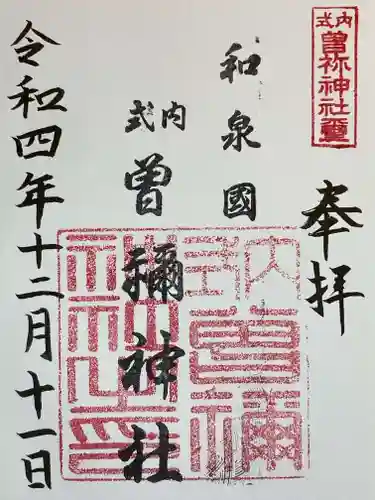 式内
曽祢神社璽
奉拝
和泉國
式内
曽禰神社
令和四年十二月十一日
式内
曽禰
神社之印